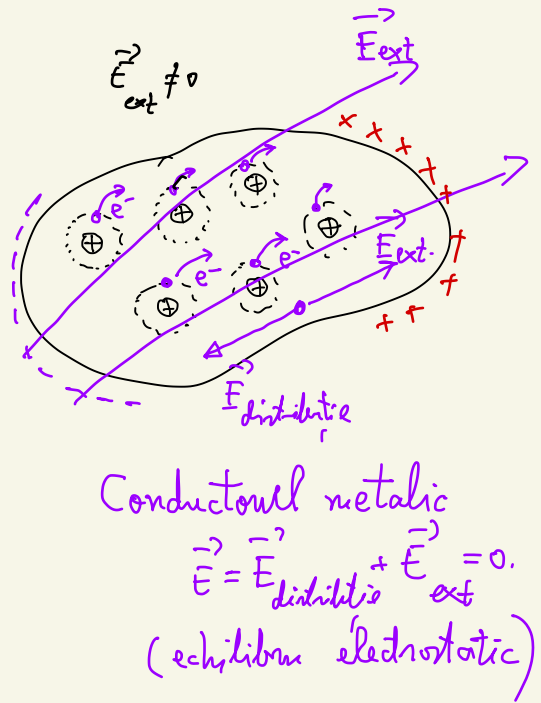 E⃗ext
E⃗ext ≠ 0
e⁻
E⃗ext.
e⁻
e⁻
E⃗distribuție
Conductorul metalic
E⃗ = E⃗distribuție + E⃗ext = 0.
(echilibru electrostatic)